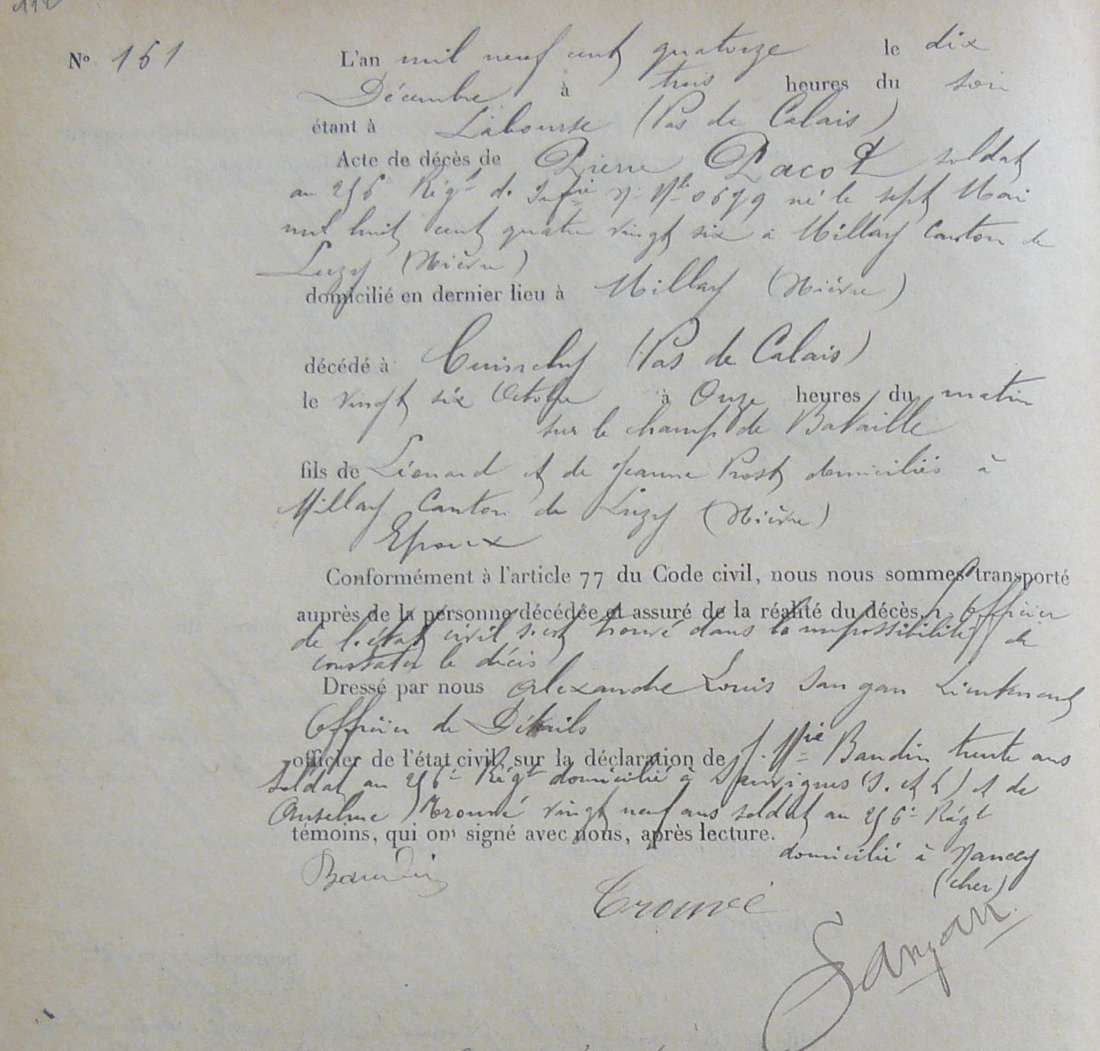 112
No 161
L'an mil neuf cent quatorze le dix
Décembre à trois heures du soir
étant à Labourse (Pas de Calais)
Acte de décès de Pierre Pacot soldat
au 256 Régt d. Inf.ie né le sept Mai
mil huit cent quatre vingt six à Millay Canton de
Luzy (Nièvre)
domicilié en dernier lieu à Millay (Nièvre)
décédé à Cuinchy (Pas de Calais)
le vingt six Octobre à Onze heures du matin
sur le champ de Bataille
fils de Léonard et de Jeanne Prost domiciliés à
Millay Canton de Luzy (Nièvre)
Epoux
Conformément à l'article 77 du Code civil, nous nous sommes transporté
auprès de la personne décédée et assuré de la réalité du décès, l'officier
de l'état civil s'est trouvé dans l'impossibilité de
constater le décès
Dressé par nous Alexandre Louis Sangan Lieutenant
Officier de Détails
officier de l'état civil, sur la déclaration de J. Mie Baudin trente ans
soldat au 256e Régt domicilié à Sanvignes (S. et L) et de
Anselme Trouvé vingt neuf ans soldat au 256e Régt
témoins, qui ont signé avec nous, après lecture.
domicilié à Nancay
(Cher)
Baudin
Trouvé
Sangan